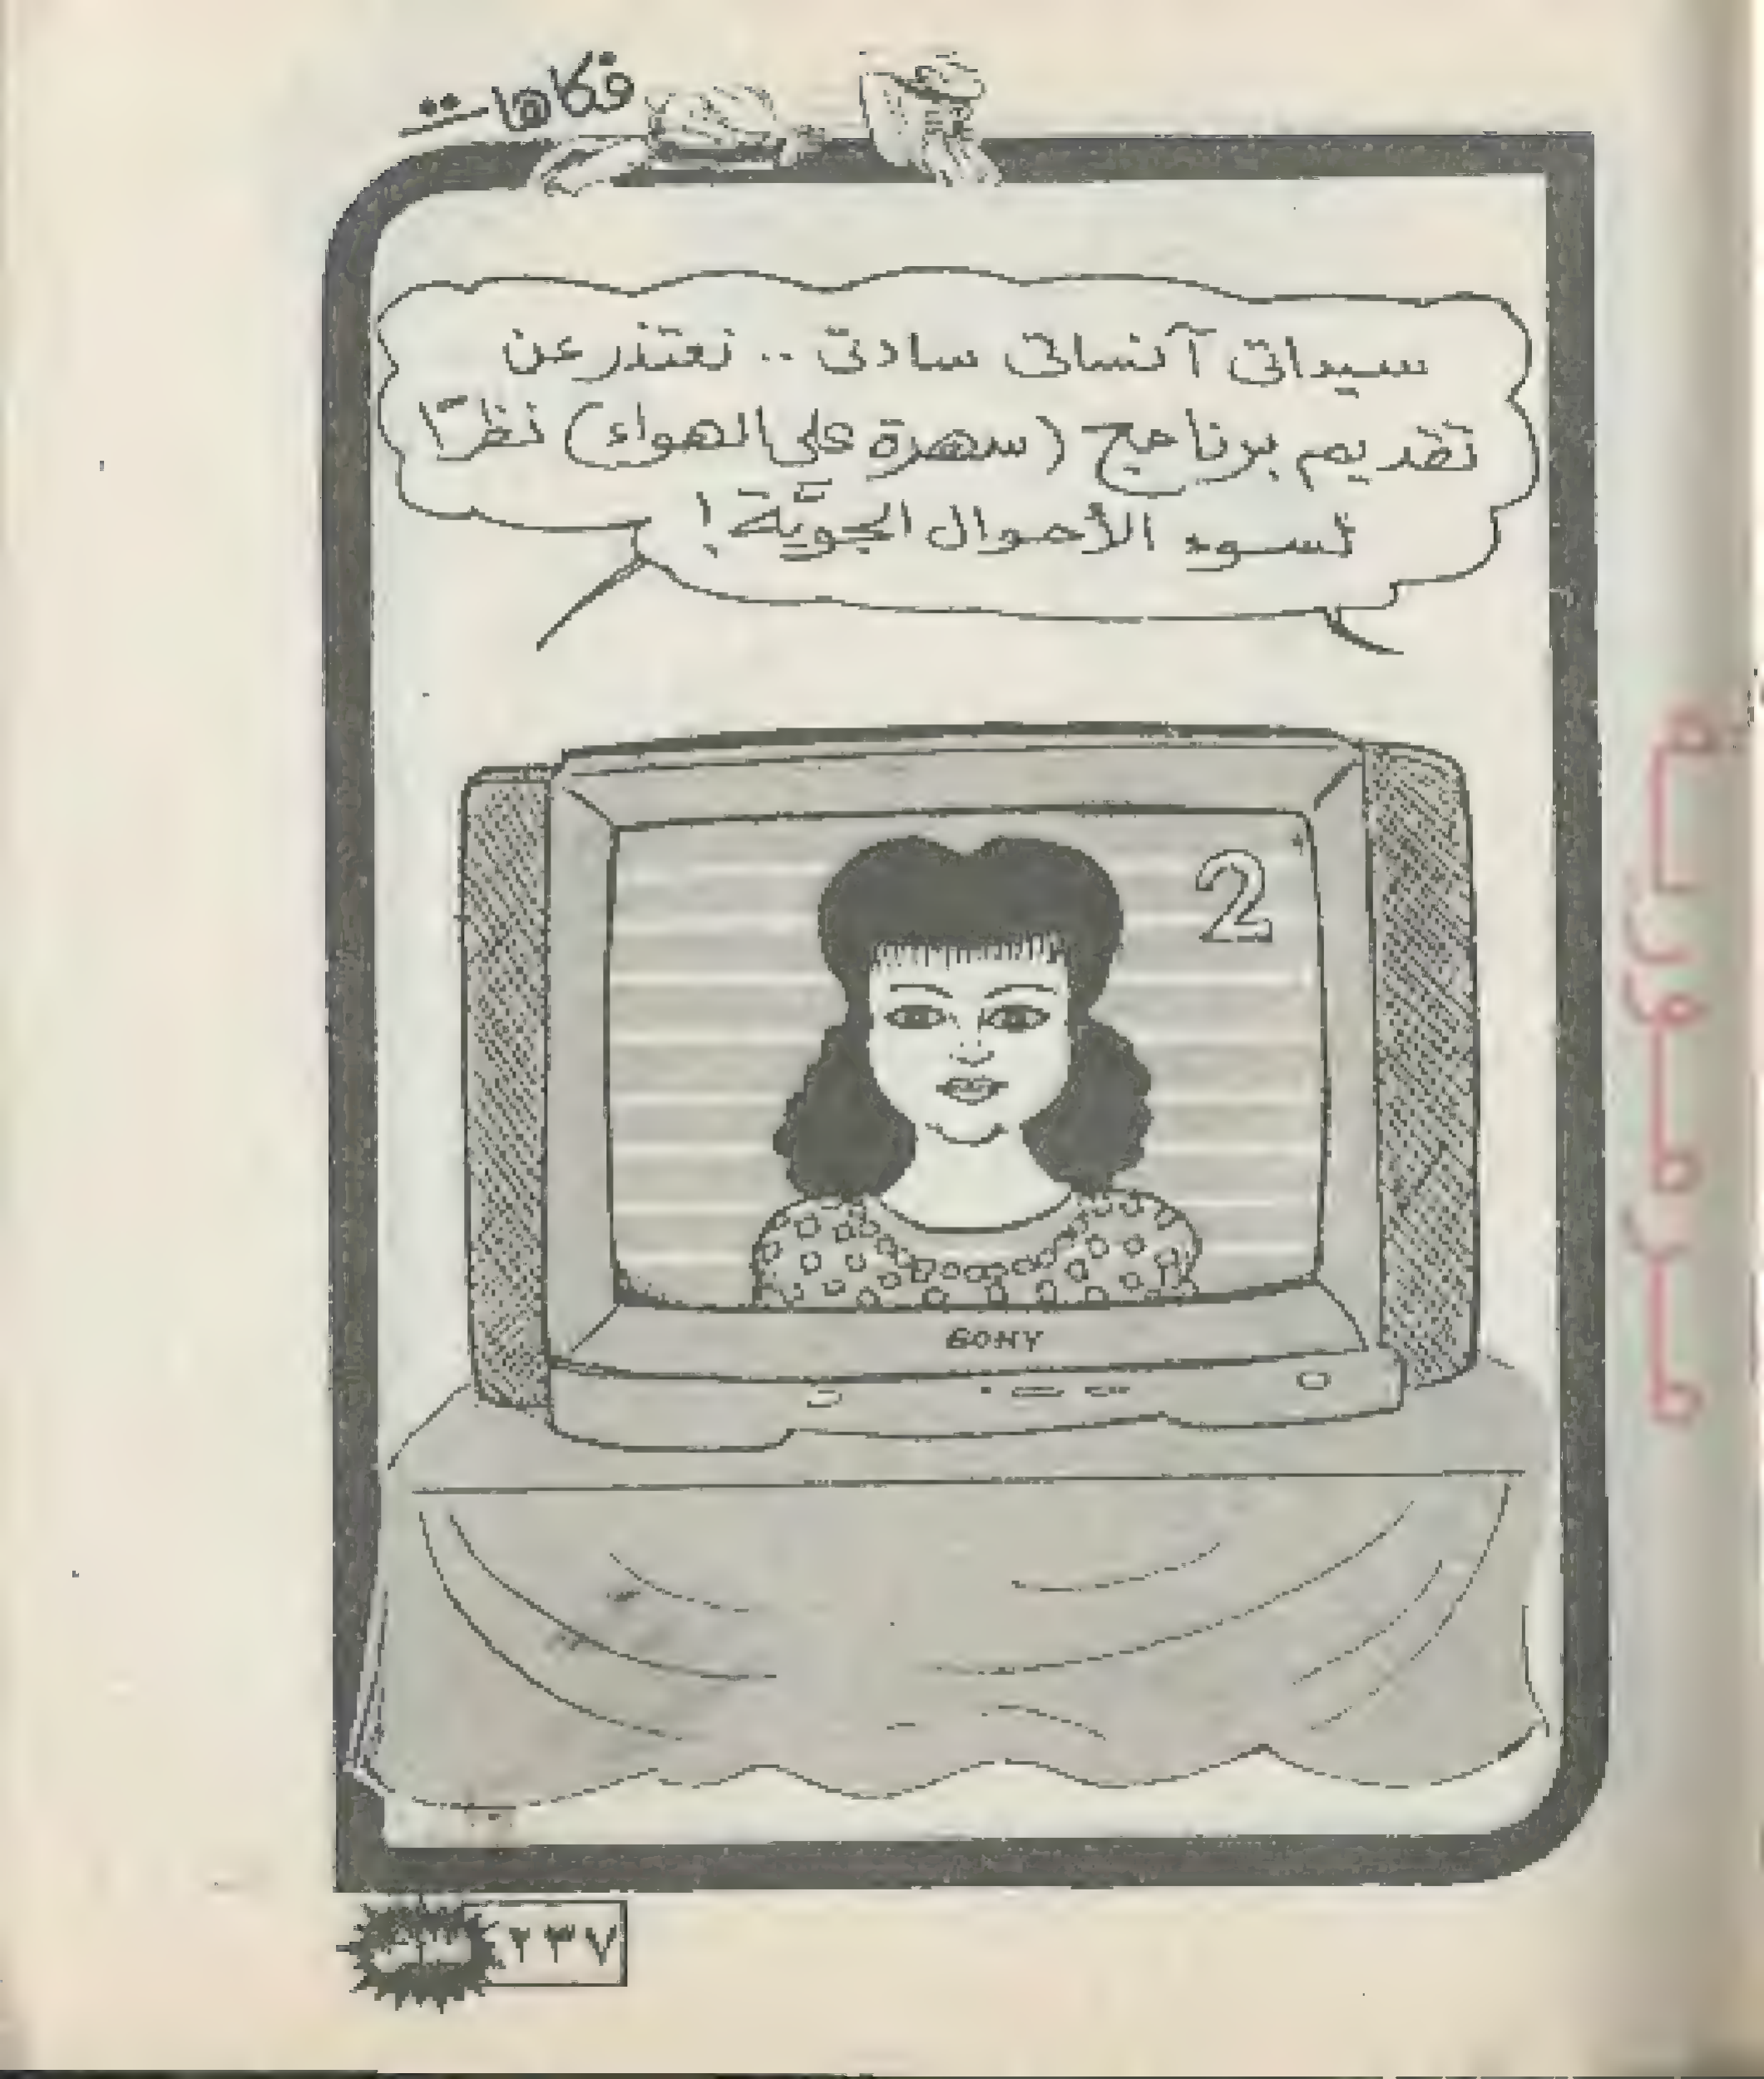 فكاهات
سيداتى آنساتى سادتى .. نعتذر عن
تقديم برنامج (سهرة على الهواء) نظرًا
لسوء الأحوال الجويَّة !
2
SONY
٢٣٧